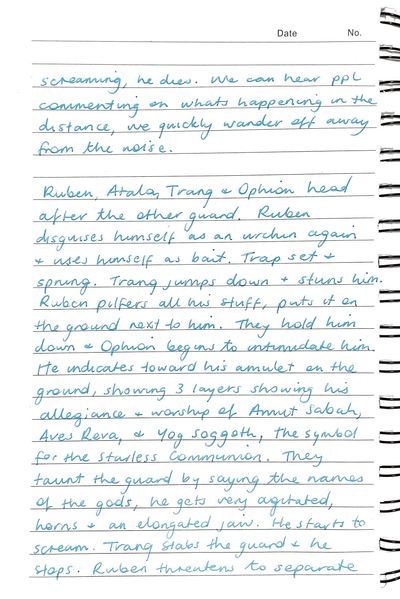 Date No.
screaming, he dies. We can hear ppl
commenting on whats happening in the
distance, we quickly wander off away
from the noise.
Ruben, Atala, Trang & Ophion head
after the other guard. Ruben
disguises himself as an urchin again
& uses himself as bait. Trap set &
sprung. Trang jumps down & stuns him.
Ruben pilfers all his stuff, puts it on
the ground next to him. They hold him
down & Ophion begins to intimidate him.
He indicates toward his amulet on the
ground, showing 3 layers showing his
allegiance & worship of Amut Sabah,
Aves Reva, & Yog Soggoth, the symbol
for the Starless Communion. They
taunt the guard by saying the names
of the gods, he gets very agitated,
horns & an elongated jaw. He starts to
scream. Trang stabs the guard & he
stops. Ruben threatens to separate